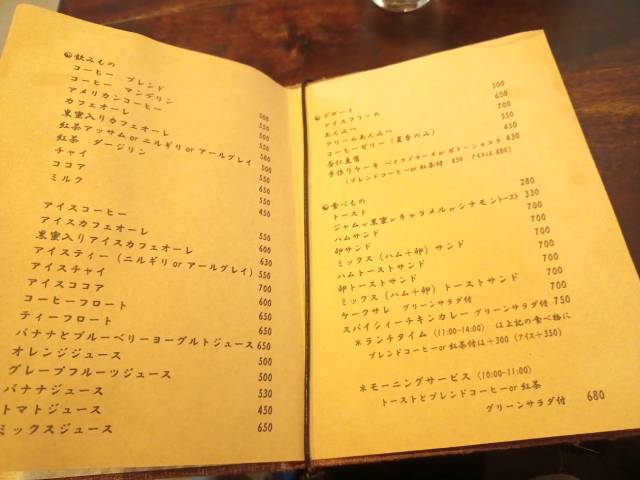 飲みもの
コーヒー ブレンド 500
コーヒー マンデリン 550
アメリカンコーヒー 500
カフェオーレ 550
黒蜜入りカフェオーレ 580
紅茶アッサム or ニルギリ or アールグレイ 500
紅茶 ダージリン 550
チャイ 650
ココア 550
ミルク 450
アイスコーヒー 550
アイスカフェオーレ 600
黒蜜入りアイスカフェオーレ 630
アイスティー (ニルギリ or アールグレイ) 550
アイスチャイ 700
アイスココア 600
コーヒーフロート 650
ティーフロート 650
バナナとブルーベリーヨーグルトジュース 650
オレンジジュース 500
グレープフルーツジュース 500
バナナジュース 530
トマトジュース 450
ミックスジュース 650
デザート
アイスクリーム 500
あんみつ 650
クリームあんみつ 700
コーヒーゼリー (夏季のみ) 550
杏仁豆腐 500
手作りケーキ ベイクドチーズ or ガトーショコラ 430
(ブレンドコーヒー or 紅茶付 830 アイスは 880)
食べもの
トースト 280
ジャム or 黒蜜 or キャラメル or シナモントースト 330
ハムサンド 700
卵サンド 700
ミックス (ハム+卵) サンド 700
ハムトーストサンド 700
卵トーストサンド 700
ミックス (ハム+卵) トーストサンド 700
ケークサレ グリーンサラダ付 700
スパイシーチキンカレー グリーンサラダ付 750
※ランチタイム (11:00-14:00) は上記の食べ物に
ブレンドコーヒー or 紅茶付は+300 (アイス+350)
※モーニングサービス (10:00-11:00)
トーストとブレンドコーヒー or 紅茶
グリーンサラダ付 680